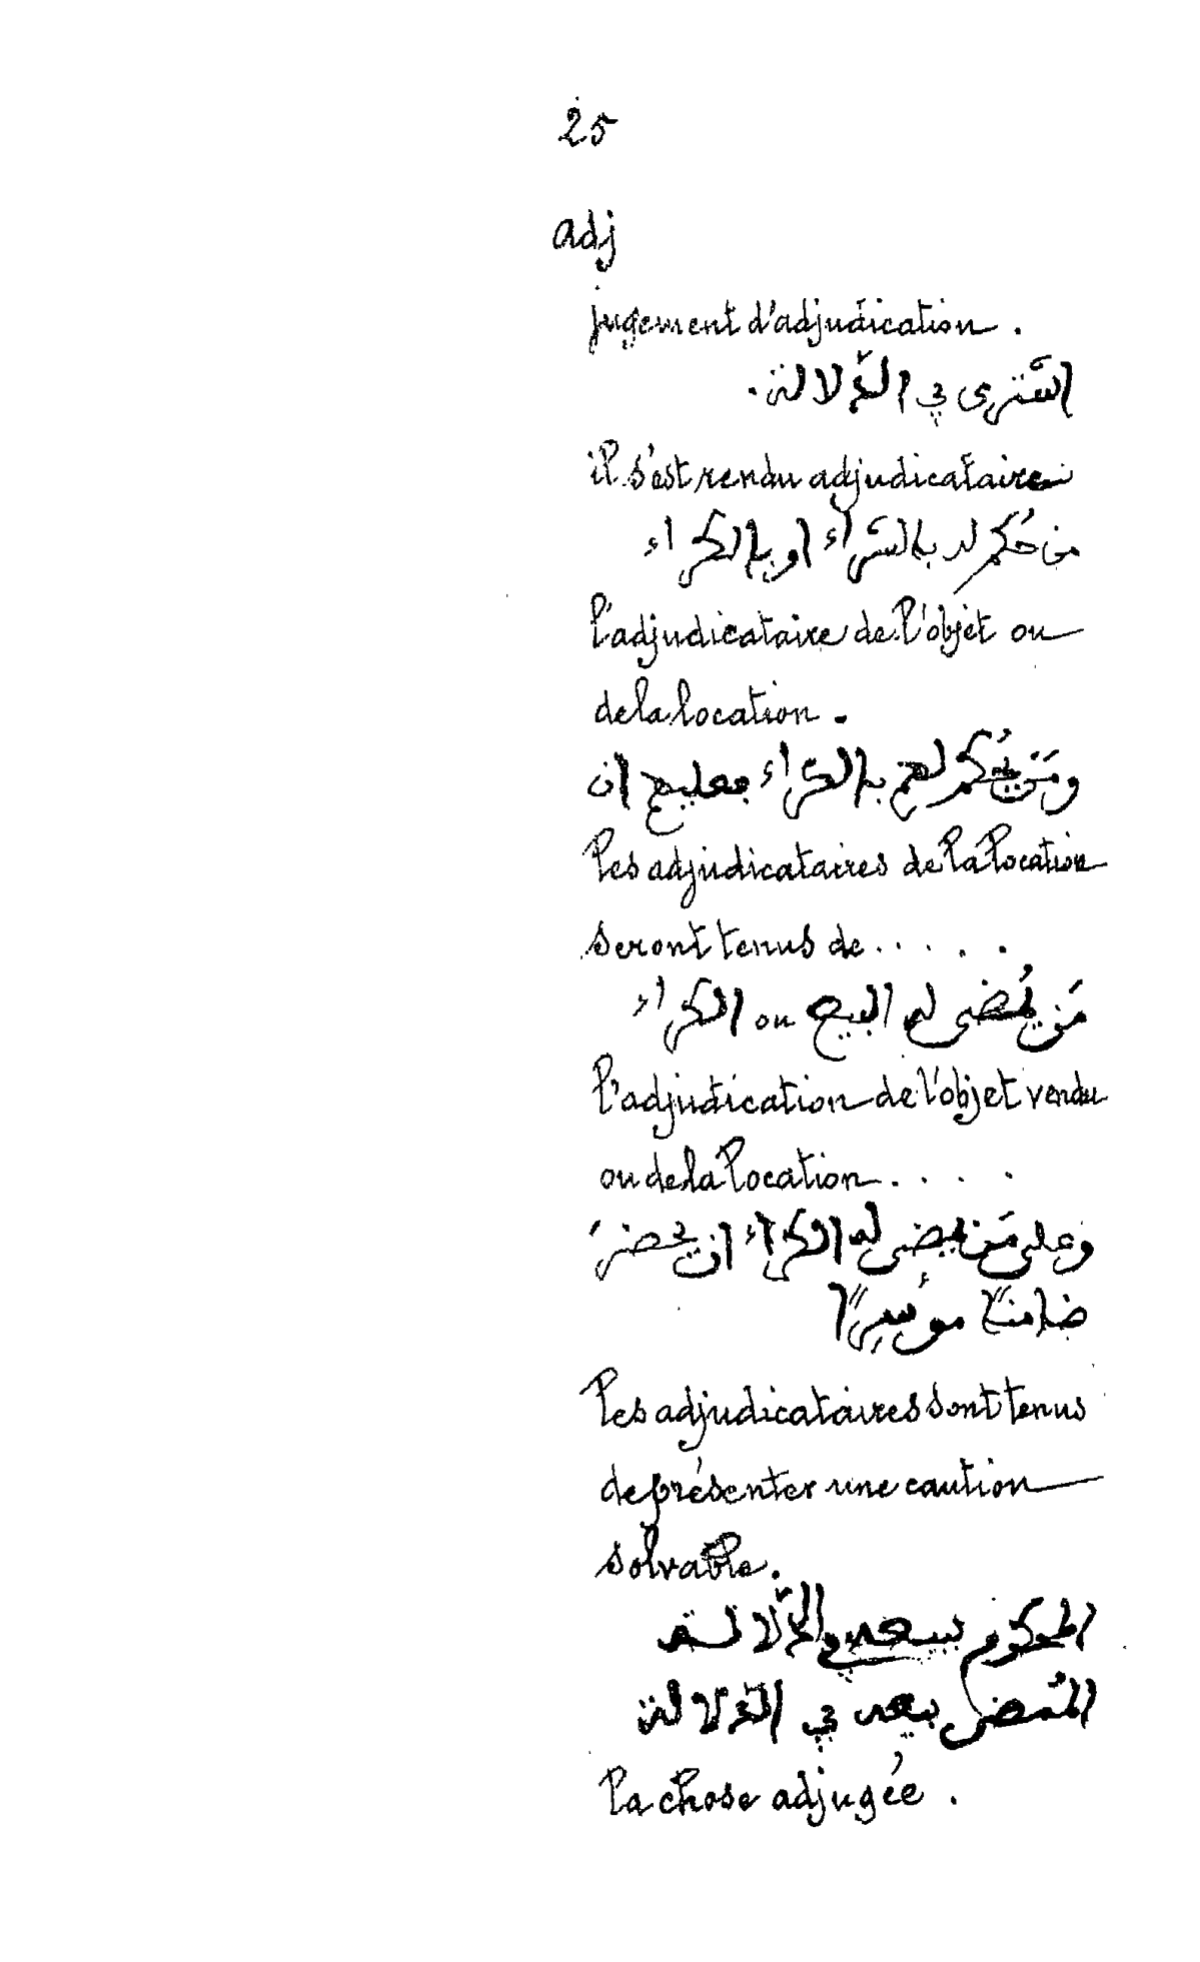 25
adj
jugement d'adjudication.
اشترى في الدّلالة.
il s'est rendu adjudicataire
من حُكم له بالشراء او بالكراء
l'adjudicataire de l'objet ou
de la location.
ومَن يُحكم لهم بالكراء فعليهم ان
les adjudicataires de la location
seront tenus de.....
مَن يُمضى له البيع ou الكراء
l'adjudication de l'objet vendu
ou de la location....
وعلى مَن يمضى له الكراء ان يحضرَ
ضامنًا موسِرًا
les adjudicataires sont tenus
de présenter une caution
solvable.
المحكوم ببيعه في الدّلالة
المُمضى بيعه في الدّلالة
la chose adjugée.